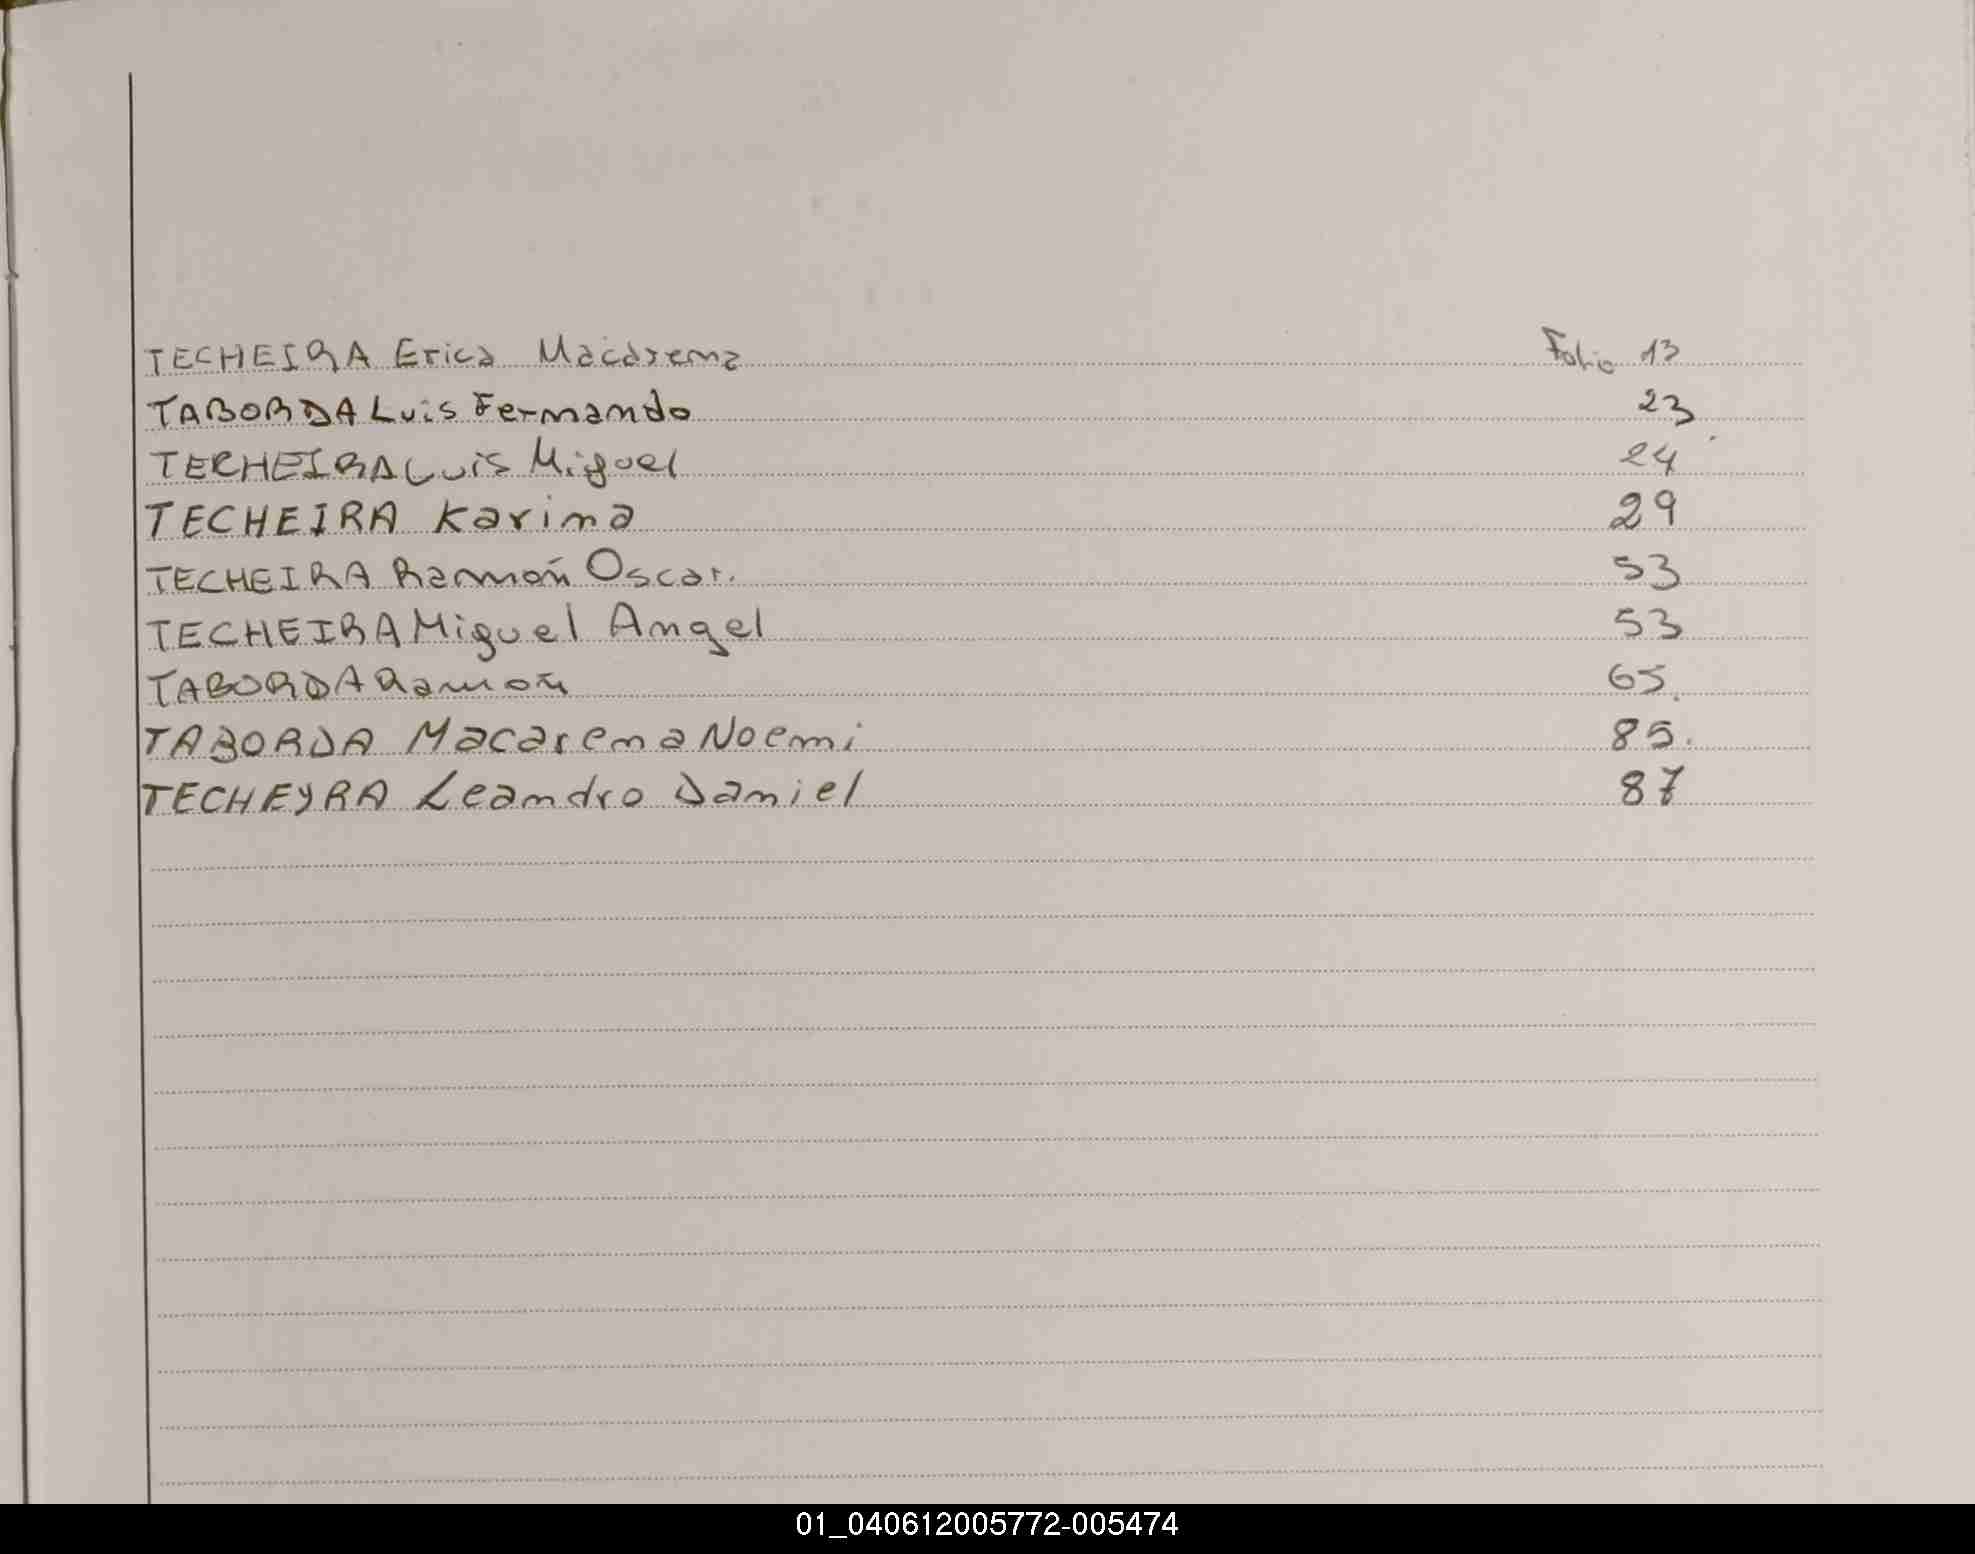 TECHEIRA Erica Macarena Folio 13
TABORDA Luis Fernando 23
TECHEIRA Luis Miguel 24
TECHEIRA Karina 29
TECHEIRA Ramón Oscar. 53
TECHEIRA Miguel Angel 53
TABORDA Ramón 65.
TABORDA Macarena Noemi 85.
TECHEYRA Leandro Daniel 87
01_040612005772-005474